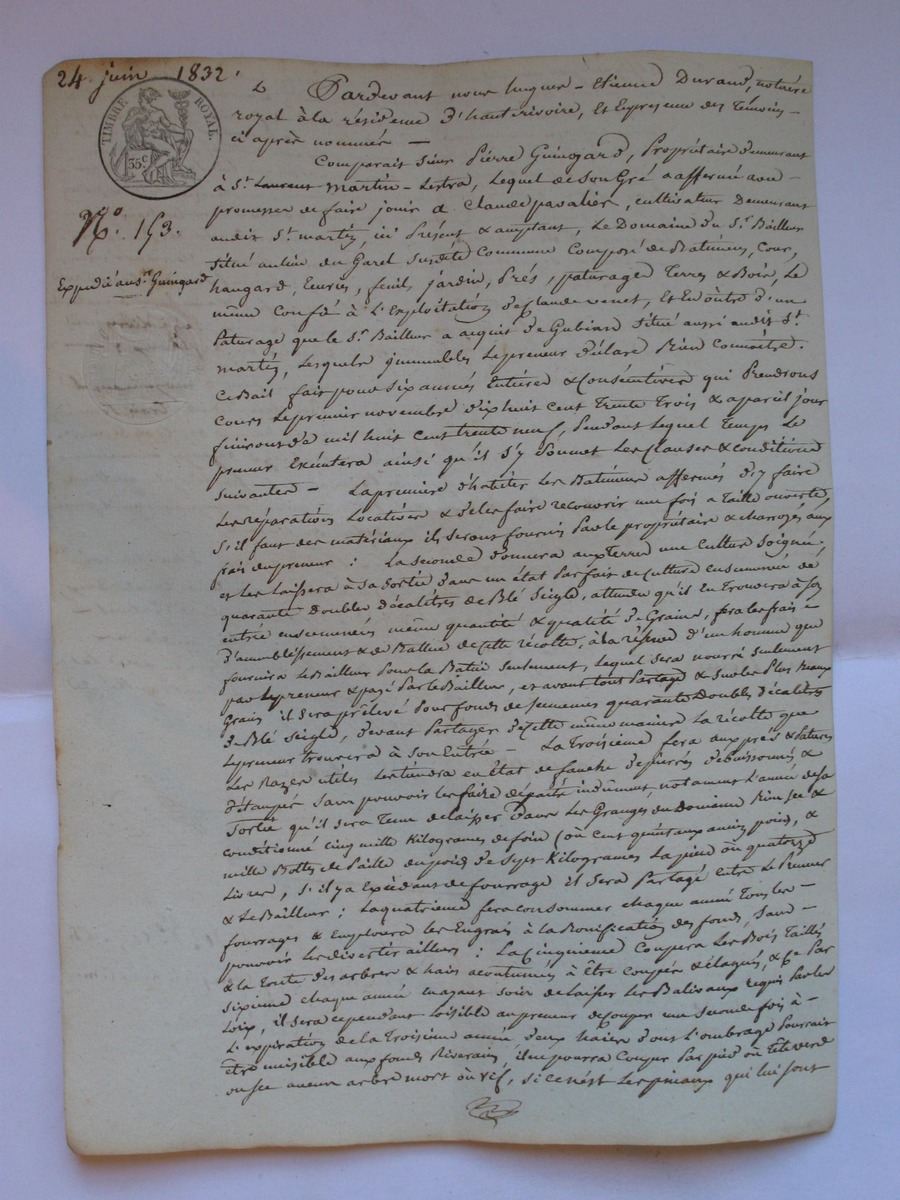 24 juin 1832.
TIMBRE ROYAL
35 c
N.º 153.
Expédié au sr. Guingard
Pardevant nous hugues-Etienne Durand, notaire
royal à la résidence d'hautrivoire, et En présence des témoins
ci après nommés —
Comparait sieur Pierre Guingard, Propriétaire demeurant
à St. Laurent Martin-Lestra, Lequel de Son Gré a affermé avec
promesse de faire jouir à Claude pavalier, cultivateur Demeurant
audit St. martin, ici Présent & acceptant, Le Domaine du Sr. Bailleur
situé au lieu du Garel susdite Commune Composé de Batimens, Cour,
hangard, Ecuries, fenils, jardin, Prés, paturage Terres & Bois, Le
même Confié à L'Exploitation de Claude venet, Et En outre d'un
Paturage que le Sr. Bailleur a acquis de situé aussi audit St.
martin, Lesquels immeubles Le preneur déclare Bien Connoitre.
Ce Bail fait pour Six années Entières & Consécutives qui Prendront
Cours Le premier novembre dix huit Cent Trente Trois & à pareil jour
finiront d'a mil huit Cent trente neuf, Pendant Lequel Temps Le
preneur Exécutera ainsi qu'il s'y Soumet Les Clauses & conditions
suivantes — La première d'habiter Les Batimens affermés d'y faire
Les réparations Locatives & de les faire recouvrir une fois a Taille ouverte,
s'il faut des matériaux ils seront fournis Par le propriétaire & charroyés aux
frais du preneur : La seconde donnera aux Terres une Culture Soignée,
et les Laissera à Sa Sortie dans un état Parfait de Culture ensemencées de
quarante doubles décalitres de Blé Seigle, attendu qu'il En Trouvera à Son
entrée ensemencées même quantité & qualité de Grains, fera les frais
d'ameublissement & de Battue de Cette récolte, à la réserve d'un homme que
fournira Le Bailleur Pour la Battue Seulement, Lequel Sera nourri Seulement
par Le preneur & payé Par le Bailleur, et avant tout Partage & Sur Les Plus Beaux
Grains il Sera prélevé Pour fonds de Semences quarante Doubles Décalitres
de Blé Seigle, devant Partager de Cette même manière La récolte que
Le preneur trouvera à Son Entrée — La Troisième fera aux prés & Patures
Les Razes utiles Les tiendra en état de fauche d'épierrés débuissonnés &
détaupés sans pouvoir les faire dépaitre indument, notament L'année de sa
Sortie qu'il sera Tenu de laisser Dans Les Granges du Domaine Bien Sec &
Conditionné Cinq mille Kilogrames de foin (ou cent quintaux ancien poids, &
mille Bottes de Paille du poids de Sept Kilogrames La pièce ou quatorze
Livres, S'il y a Excédant de fourrage il Sera Partagé entre Le Preneur
& Le Bailleur : La quatrième fera consommer chaque année Tous les
fourrages & Emploiera Les Engrais à La Bonification des fonds, Sans
pouvoir Les divertir ailleurs : La Cinquième Coupera Les Bois Taillis
& La tonte des arbres & haies acoutumés à être Coupés & élagués, & Ce Par
Sixième chaque année En ayant soin de Laisser Les Baliveaux requis Par les
Loix, il sera cependant Loisible au preneur de Couper une Seconde fois à
L'expiration de la Troisième année deux haies dont L'ombrage Pourrait
être nuisible aux fonds Riverains, il ne pourra Couper Par pied ou tête verd
ou sec aucun arbre mort ou vif, si ce n'est Les pinaux qui lui sont